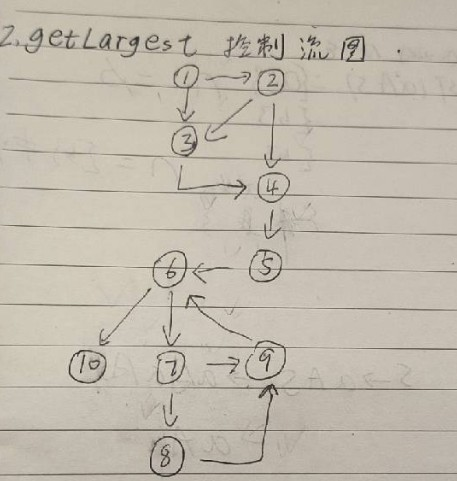 2.getLargest 控制流图.
① ②
③
④
⑥ ⑤
⑩ ⑦ ⑨
⑧